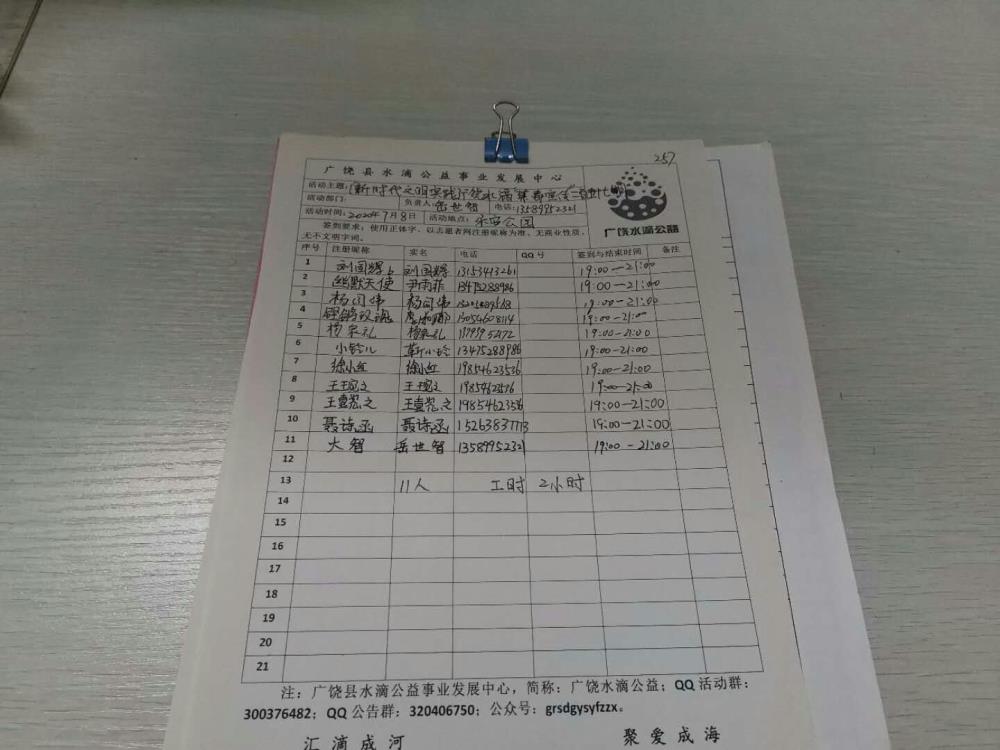 257
广饶县水滴公益事业发展中心
活动主题：新时代文明实践广饶水滴
活动部门： 负责人：岳世智 电话：13589952321
活动时间：2020年7月8日 活动地点：乐安公园
签到要求：使用正体字、以志愿者网注册昵称为准、无商业性质、
无不文明字词。
广饶水滴公益
序号 注册昵称 实名 电话 QQ号 签到与结束时间 备注
1 刘国辉 刘国辉 13153413261 19:00-21:00
2 幽默天使 尹雨菲 13475288986 19:00-21:00
3 杨闰伟 杨闰伟 19:00-21:00
4 13054608114 19:00-21:00
5 杨泉礼 杨泉礼 19:00-21:00
6 小铃儿 靳小玲 13475288986 19:00-21:00
7 徐小红 徐小红 19854623536 19:00-21:00
8 19:00-21:00
9 19854623536 19:00-21:00
10 聂诗函 聂诗函 15263837713 19:00-21:00
11 大智 岳世智 13589952321 19:00-21:00
12
13 11人 工时 2小时
14
15
16
17
18
19
20
21
注：广饶县水滴公益事业发展中心，简称：广饶水滴公益；QQ活动群：
300376482；QQ公告群：320406750；公众号：grsdgysyfzzx。
汇滴成河 聚爱成海